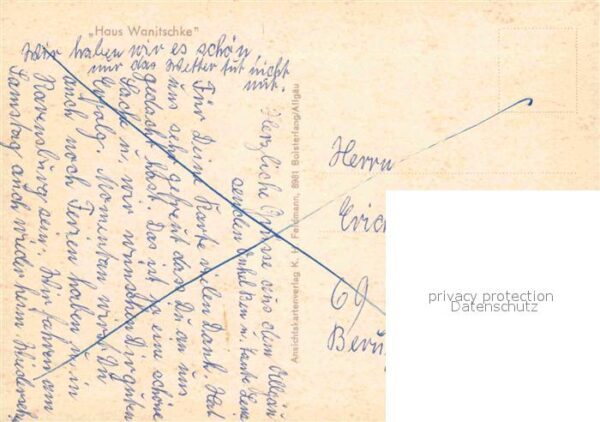 „Haus Wanitschke"
Wir haben wir es schön
nur das Wetter tut nicht
mit.
Herzliche Grüsse aus dem Allgäu
senden Onkel u. Tante Lene
Für Deine Karte vielen Dank. Hat
uns sehr gefreut das Du an uns
gedacht hast. Das ist ja eine schöne
Sache u. wir wünschen Dir guten
Erfolg. Momentan wirst Du
auch noch Ferien haben u. in
Ravensburg sein. Wir fahren am
Samstag auch wieder heim. Wiederseh
Ansichtskartenverlag K. Feldmann, 8981 Bolsterlang/Allgäu
Herrn
Eric
69
privacy protection
Datenschutz